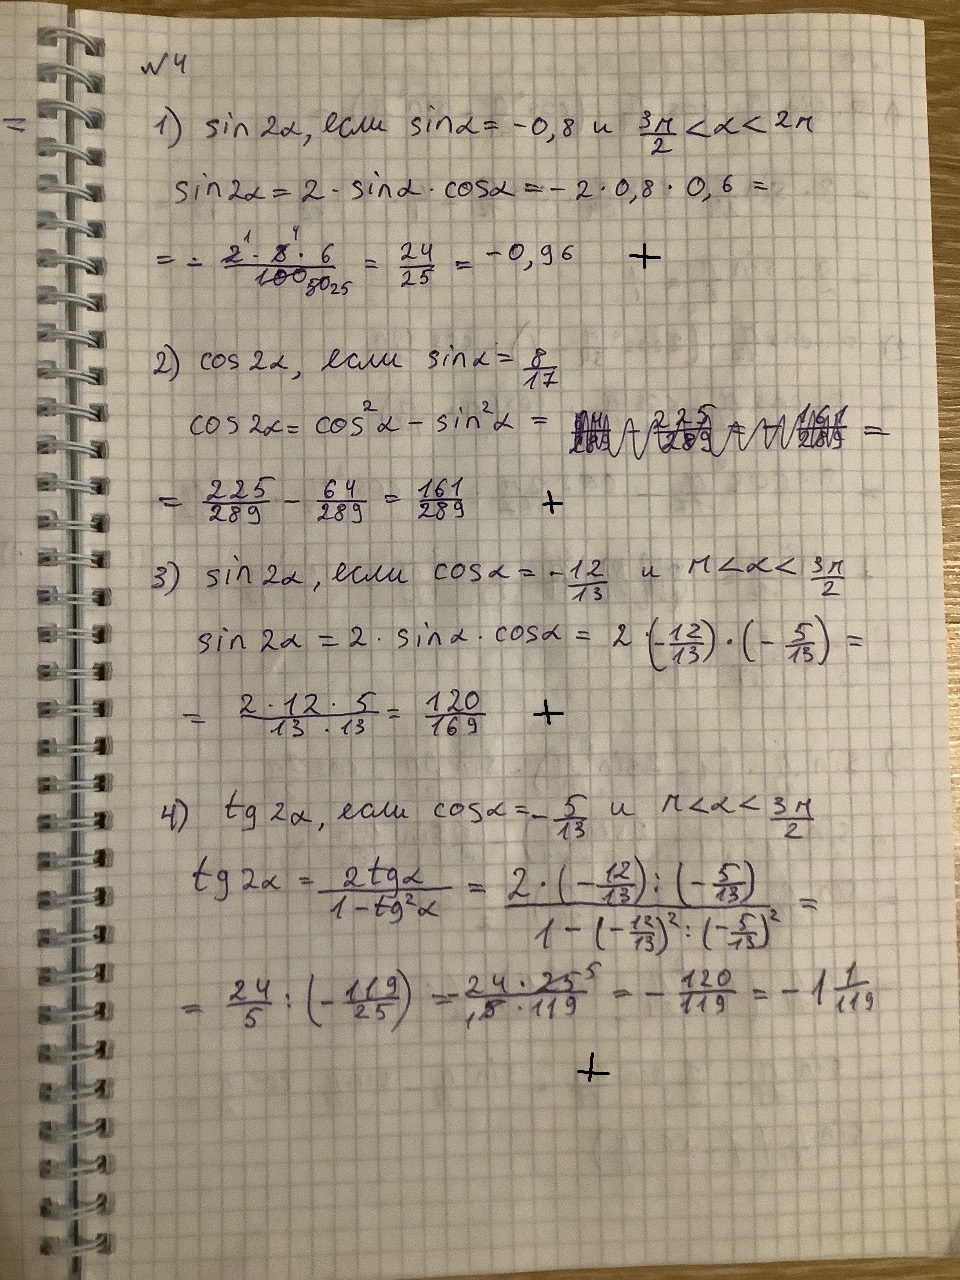 =
№4
1) sin 2α, если sin α = -0,8 и 3π/2 < α < 2π
sin 2α = 2 · sin α · cos α = - 2 · 0,8 · 0,6 =
= - 2¹ · 8⁴ · 6 / 100 50 25 = 24/25 = -0,96 +
2) cos 2α, если sin α = 8/17
cos 2α = cos² α - sin² α = =
= 225/289 - 64/289 = 161/289 +
3) sin 2α, если cos α = -12/13 и π < α < 3π/2
sin 2α = 2 · sin α · cos α = 2 · (-12/13) · (-5/13) =
= 2 · 12 · 5 / 13 · 13 = 120/169 +
4) tg 2α, если cos α = -5/13 и π < α < 3π/2
tg 2α = 2 tg α / 1 - tg² α = 2 · (-12/13) : (-5/13) / 1 - (-12/13)² : (-5/13)² =
= 24/5 : (-119/25) = - 24 · 25⁵ / ₁5 · 119 = - 120/119 = - 1 1/119
+